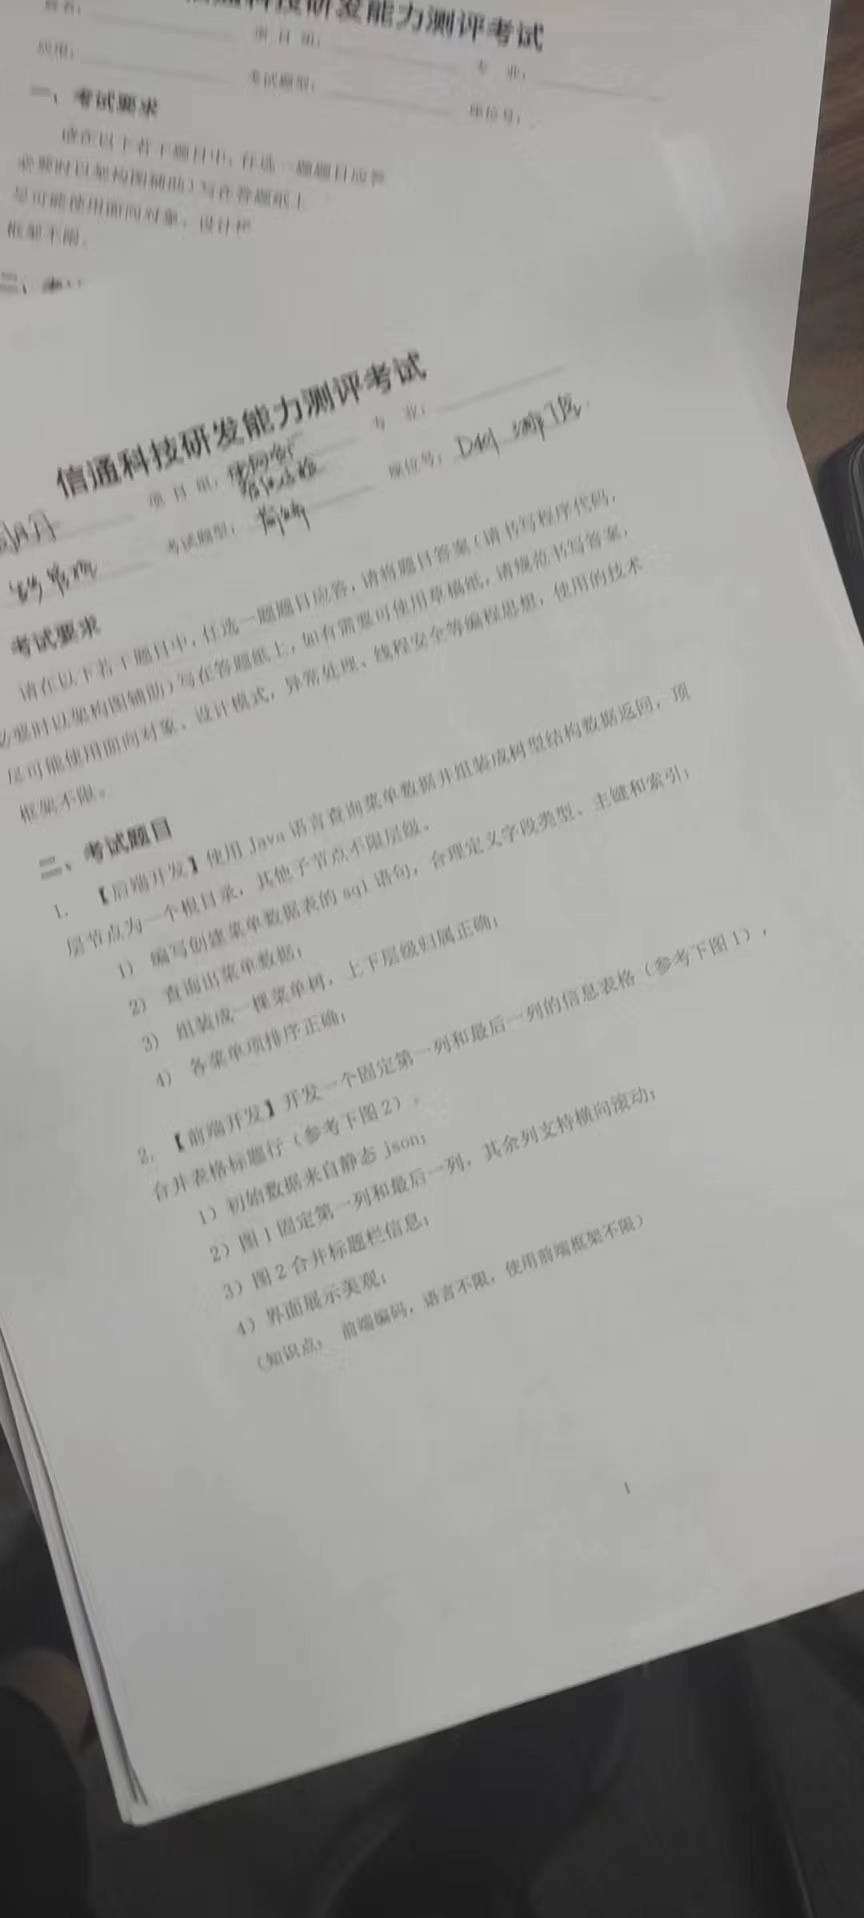 研发能力测评考试
项目组：
专 业：
应用：
考试题型：
座位号：
一、考试要求
请在以下若干题目中，任选一题题目应答
必要时以架构图辅助）写在答题纸上
尽可能使用面向对象、设计模
框架不限。
信通科技研发能力测评考试
项目组：
专 业：
考试题型：前端
座位号：
考试要求
请在以下若干题目中，任选一题题目应答，请将题目答案（请书写程序代码，
必要时以架构图辅助）写在答题纸上，如有需要可使用草稿纸，请规范书写答案，
尽可能使用面向对象、设计模式，异常处理、线程安全等编程思想，使用的技术
框架不限。
二、考试题目
1. 【后端开发】使用 Java 语言查询菜单数据并组装成树型结构数据返回，顶
层节点为一个根目录，其他子节点不限层级。
1） 编写创建菜单数据表的 sql 语句，合理定义字段类型、主键和索引；
2） 查询出菜单数据；
3） 组装成一棵菜单树，上下层级归属正确；
4） 各菜单项排序正确；
2. 【前端开发】开发一个固定第一列和最后一列的信息表格（参考下图 1），
合并表格标题行（参考下图 2）。
1）初始数据来自静态 json；
2）图 1 固定第一列和最后一列，其余列支持横向滚动；
3）图 2 合并标题栏信息；
4）界面展示美观；
（知识点： 前端编码，语言不限，使用前端框架不限）
1